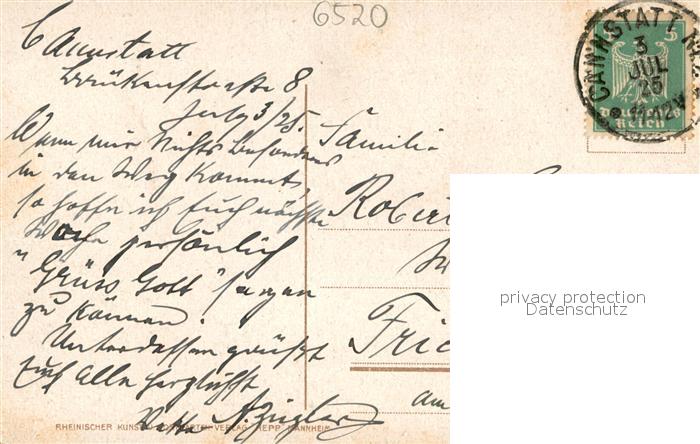 6520
Cannstatt
Brückenstraße 8
July 3/25.
Wenn mir Nichts besonderes
in den Weg kommt,
so hoffe ich Euch nächste
Woche persönlich
"Grüss Gott" sagen
zu können.
Unterdessen grüßt
Euch alle herzlichst
A. Ziegler
Familie
Robert
Fried
am
CANNSTATT
3
JUL
25
11-12V
5
Deutsches
Reich
privacy protection
Datenschutz
RHEINISCHER KUNST- VERLAG REPP MANNHEIM